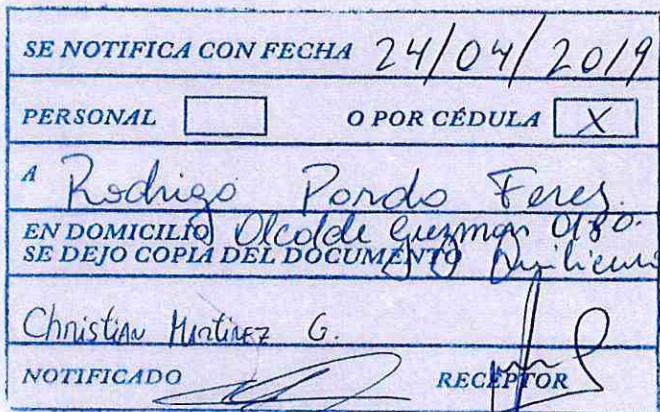 SE NOTIFICA CON FECHA 24/04/2019
PERSONAL O POR CÉDULA X
A Rodrigo Pardo Feres.
EN DOMICILIO Alcalde Guzman 0180.
SE DEJO COPIA DEL DOCUMENTO Quilicura
Christian Martinez G.
NOTIFICADO RECEPTOR